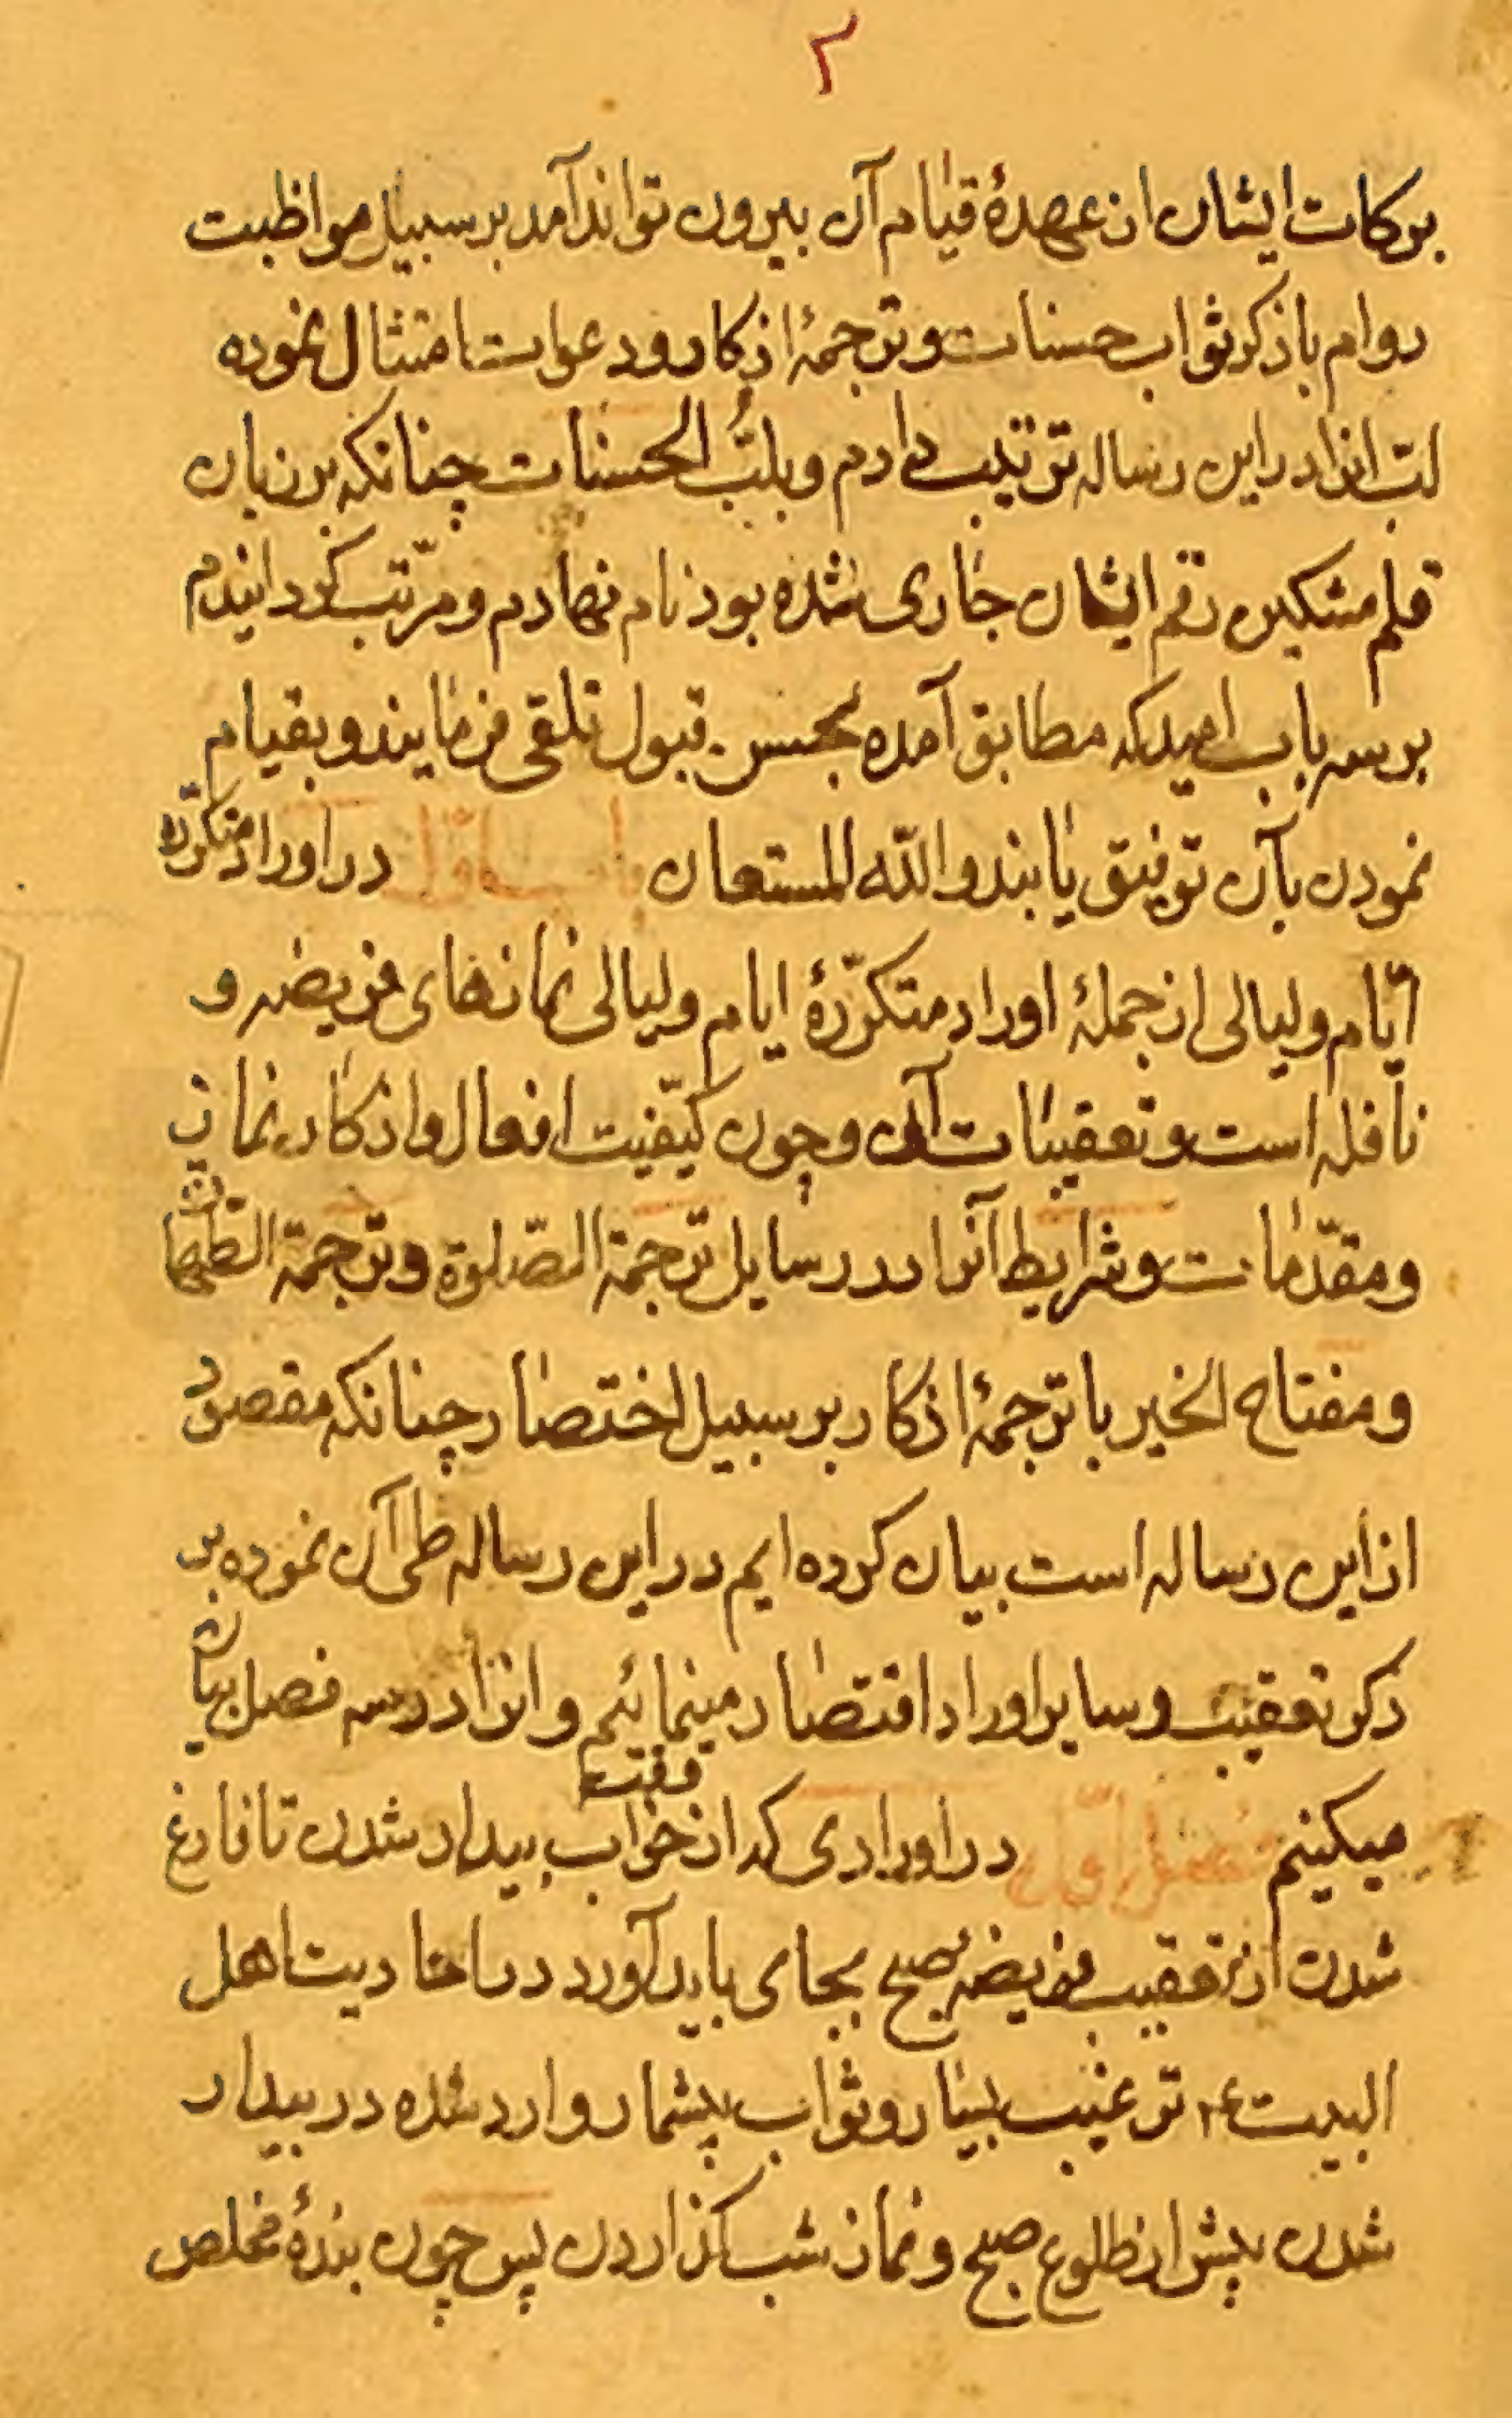 ۲
برکات ایشان از عهدهٔ قیام آن بیرون تواند آمد بر سبیل مواظبت
دوام با ذکر ثواب حسنات و ترجمهٔ اذکار و دعوات امتثال نموده
لبّ انرا در این رساله ترتیب دادم و بلبّ الحسنات چنانکه بر زبان
قلم مشکین رقم ایشان جاری شده بود نام نهادم و مرتّب کردانیدم
بر سه باب امید که مطابق آمده بحسن قبول تلقی فرمایند و بقیام
نمودن بآن توفیق یابند و الله المستعان باب اوّل در اوراد متکرّرهٔ
ایّام و لیالی از جملهٔ اوراد متکرّرهٔ ایام و لیالی نمازهای فریضه و
نافله است و تعقیبات آن و چون کیفیّت افعال و اذکار نماز
و مقدّمات و شرایط آنرا در رسایل ترجمة الصّلوة و ترجمة الطّهارة
و مفتاح الخیر با ترجمهٔ اذکار بر سبیل اختصار چنانکه مقصود
از این رساله است بیان کرده ایم در این رساله طی آن نموده بر
ذکر تعقیب و سایر اوراد اقتصار مینمائیم و انرا در سه فصل بیان
میکنیم فصل اوّل در اورادی که از وقت خواب بیدار شدن تا فارغ
شدن از تعقیب فریضهٔ صبح بجای باید آورد در احادیث اهل
البیت ع م ترغیب بسیار و ثواب بیشمار وارد شده در بیدار
شدن پیش از طلوع صبح و نماز شب کذاردن پس چون بندهٔ مخلص